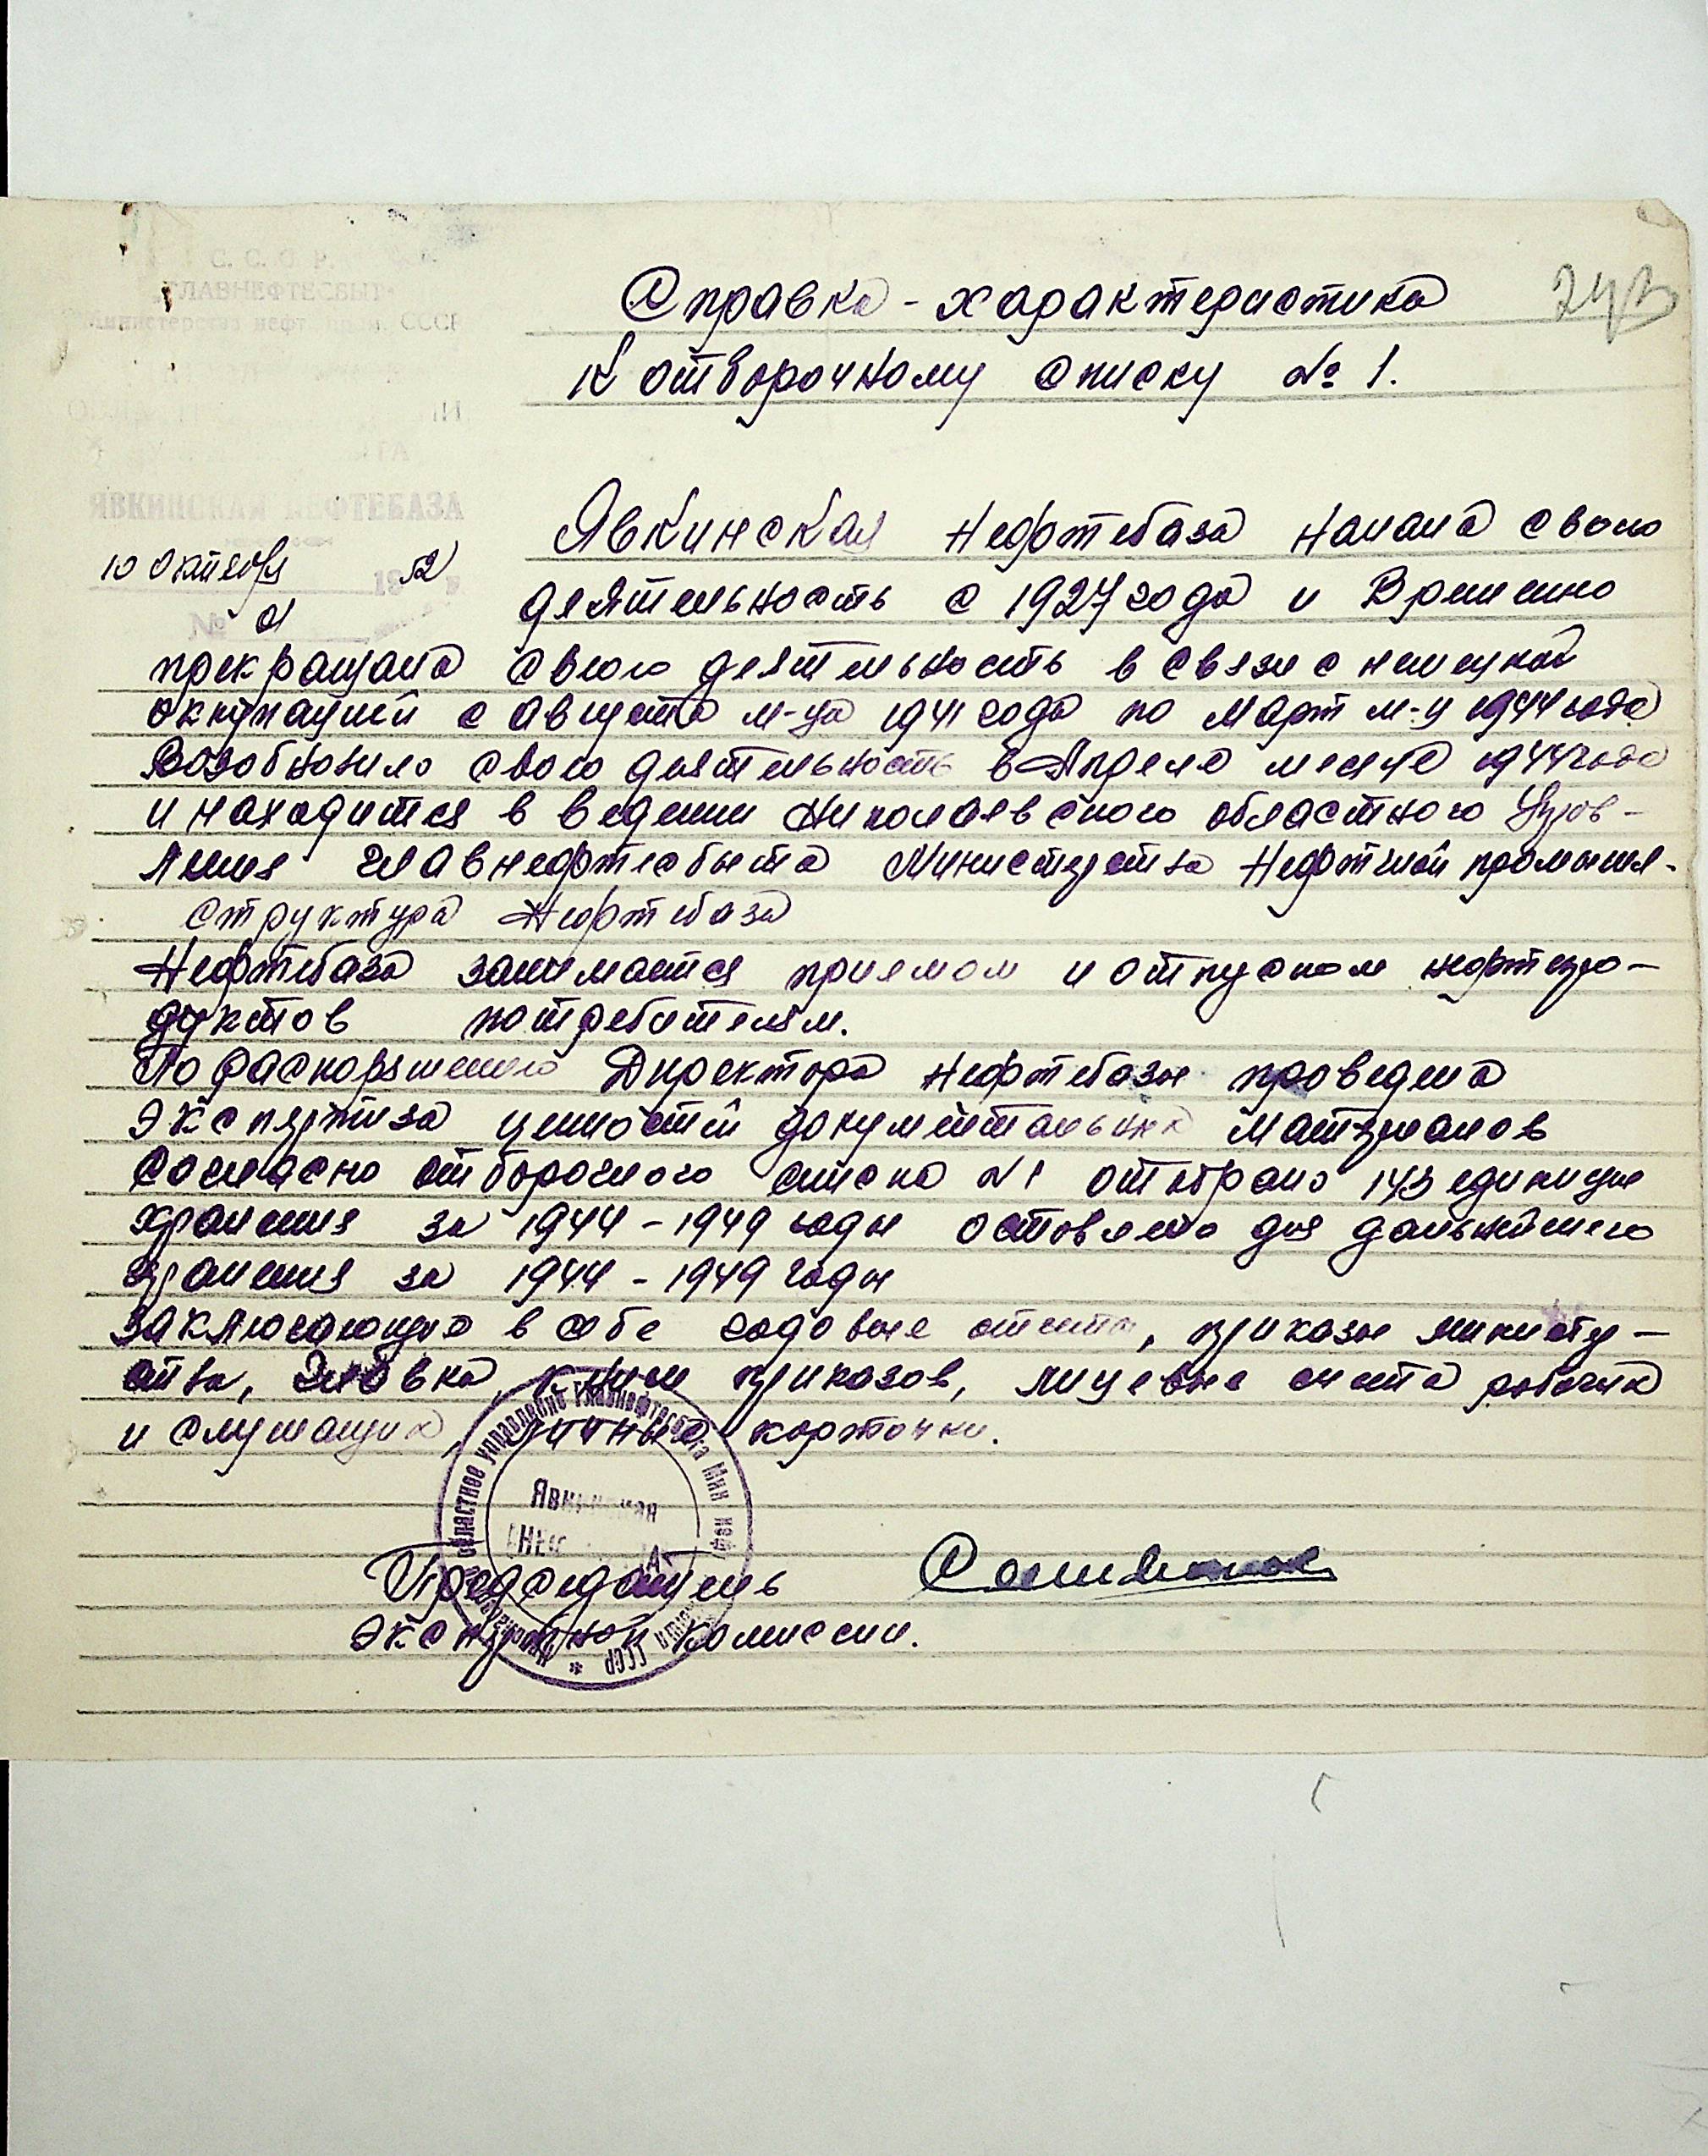 С. С. С. Р.
ГЛАВНЕФТЕСБЫТ
Министерства нефт СССР
Справка - характеристика
К отборочному списку № 1.
ЯВКИНСКАЯ НЕФТЕБАЗА
10 октября 1952
№ 21
Явкинская Нефтебаза начала свою
деятельность с 1927 года и временно
прекращала свою деятельность в связи с немецкой
оккупацией с августа м-ца 1941 года по март м-ц 1944 года
Возобновила свою деятельность в Апреле месяце 1944 года
и находится в ведении Николаевского областного Управ-
ления Главнефтесбыта Министерства Нефтяной промышл.
Структура Нефтебаза
Нефтебаза занимается приемом и отпуском нефтепро-
дуктов потребителям.
По распоряжению Директора Нефтебазы проведена
экспертиза ценностей документальных материалов
Согласно отборочного списка №1 отобрано 143 единицы
хранения за 1944 - 1949 годы оставлено для дальнейшего
хранения за 1944 - 1949 годы
заключающие в себе годовые отчеты, приказы министер-
ства, Главка, книги приказов, лицевые счета рабочих
и служащих, личные карточки.
областное управление Главнефтесбыта Мин. неф. СССР
Явкинская
Председатель
экспертной комиссии.